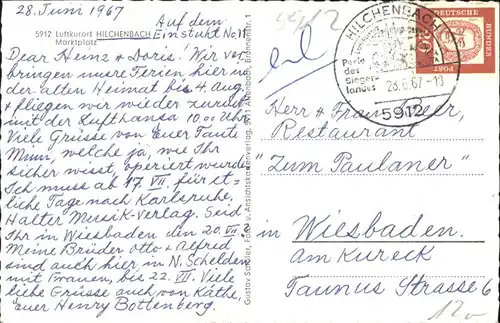 28. Juni 1967
Auf dem
5912 Luftkurort HILCHENBACH Einstuht No. 11
Marktplatz
Dear Heinz + Doris! Wir ver-
bringen unsre Ferien hier in
der alten Heimat bis 4. Aug
+ fliegen wir wieder zurück
mit der Lufthansa 10.00 Uhr
Viele Grüsse von Euer Tante
Mum, welche ja, wie Ihr
sicher wisst, operiert wurde.
Ich muss ab 17. VII. für et-
liche Tage nach Karlsruhe.
Halter Musik-Verlag. Seid
Ihr in Wiesbaden den 20. VII.?
Meine Brüder otto + Alfred
sind auch hier in N. Schelden
mit Frauen, bis 22. VII. Viele
liebe Grüsse auch von Käthe,
euer Henry Bottenberg.
HILCHENBACH
Perle
des
Sieger-
landes
28.6.67-18
5912
DEUTSCHE
BUNDES
POST
20
Herr + Frau Beer,
Restaurant
"Zum Paulaner"
in Wiesbaden.
am Kureck
Taunus Strasse 6
12.-